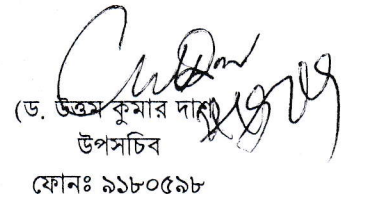 (ড. উত্তম কুমার দাশ)
উপসচিব
ফোনঃ ৯১৮০৫৯৮